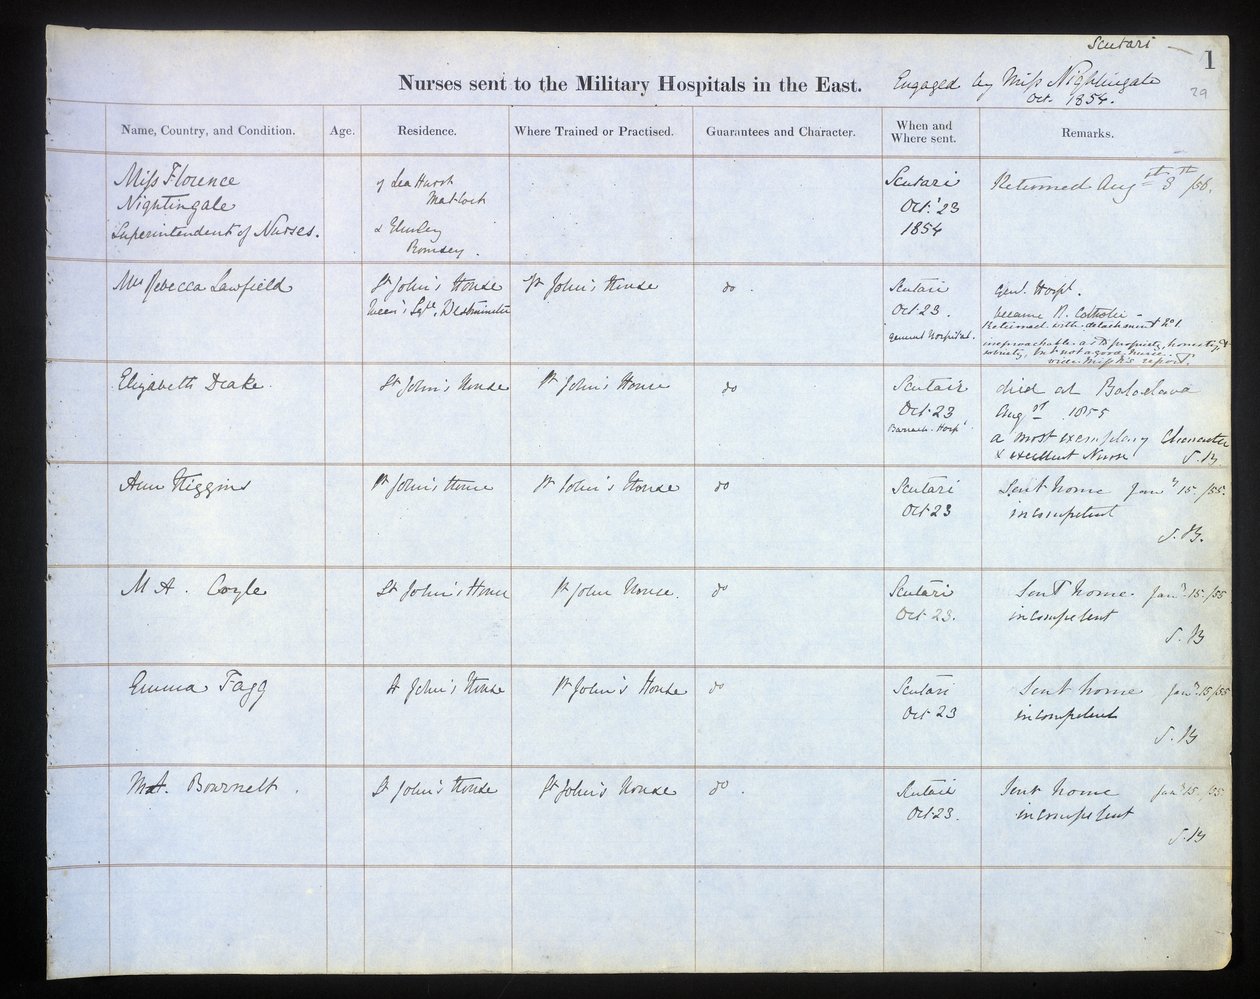 Scutari — 1
Nurses sent to the Military Hospitals in the East. Engaged by Miss Nightingale
Oct. 1854.
29
Name, Country, and Condition. Age. Residence. Where Trained or Practised. Guarantees and Character. When and Where sent. Remarks.
Miss Florence
Nightingale
Superintendent of Nurses.
of Lea Hurst
Matlock
& Embley
Romsey.
Scutari
Oct. 23
1854
Returned Augst 8th /56.
Mrs Rebecca Lawfield
St John's House
Queen's Sqre, Westminster
St John's House
do.
Scutari
Oct. 23.
General Hospital.
Genl. Hospl.
became R. Catholic -
Returned with detachment No 1
irreproachable as to propriety, honesty, &
sobriety, but not a good nurse.
vide Miss N's report.
Elizabeth Drake.
St John's House
St John's House
do
Scutari
Oct. 23
Barrack. Hospl
died at Balaclava
Augst 1855
a most exemplary Character
& excellent Nurse S.B.
Ann Higgins
St John's House
St John's House
do
Scutari
Oct 23
Sent home Jany 15. /55.
incompetent
S.B.
M A. Coyle
St John's House
St John House.
do
Scutari
Oct 23.
Sent home. Jany. 15 /55
incompetent
S.B
Emma Fagg
St John's House
St John's House
do
Scutari
Oct 23
Sent home Jany. 15/55
incompetent
S.B
M.A. Bournett.
St John's House
St John's House
do.
Scutari
Oct. 23.
Sent home Jany 15. /55
incompetent
S.B